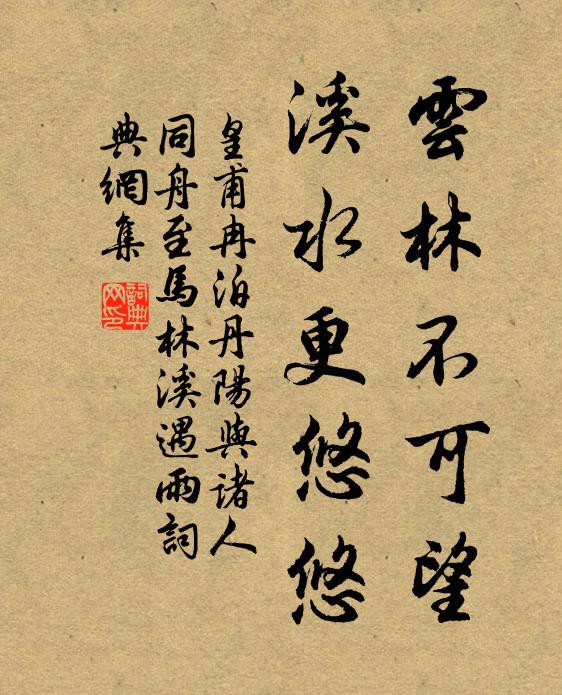 雲林不可望
溪水更悠悠
皇甫冉泊丹陽與諸人
同舟至馬林溪遇雨詞
典網集
詞典
网印